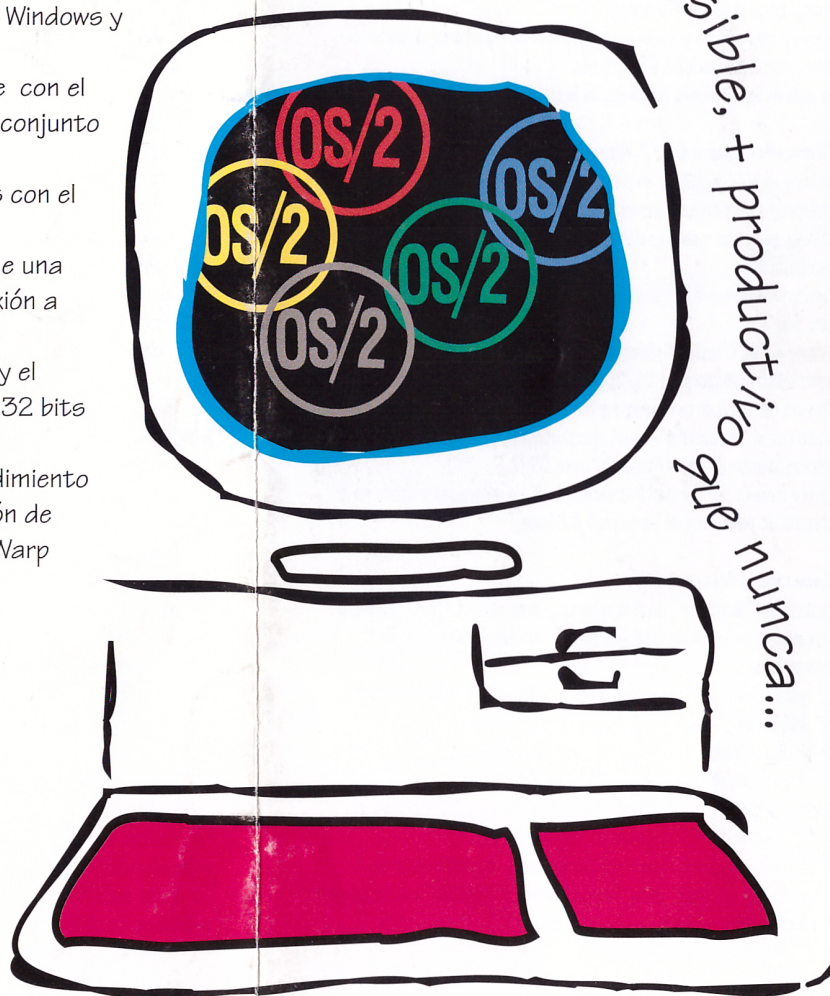 Windows y
e con el
conjunto
s con el
e una
xión a
y el
32 bits
dimiento
ón de
Warp
OS/2
OS/2
OS/2
OS/2
OS/2
sible, + productivo que nunca...